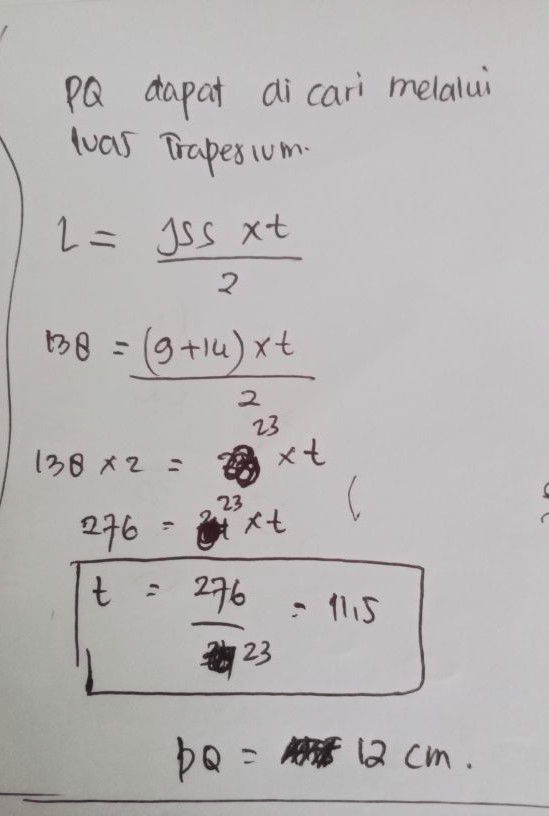 PQ dapat di cari melalui
luas Trapesium.
L = JSS x t / 2
138 = (9+14) x t / 2
138 x 2 = 23 x t
276 = 23 x t
t = 276 / 23 = 11,5
PQ = 12 cm.